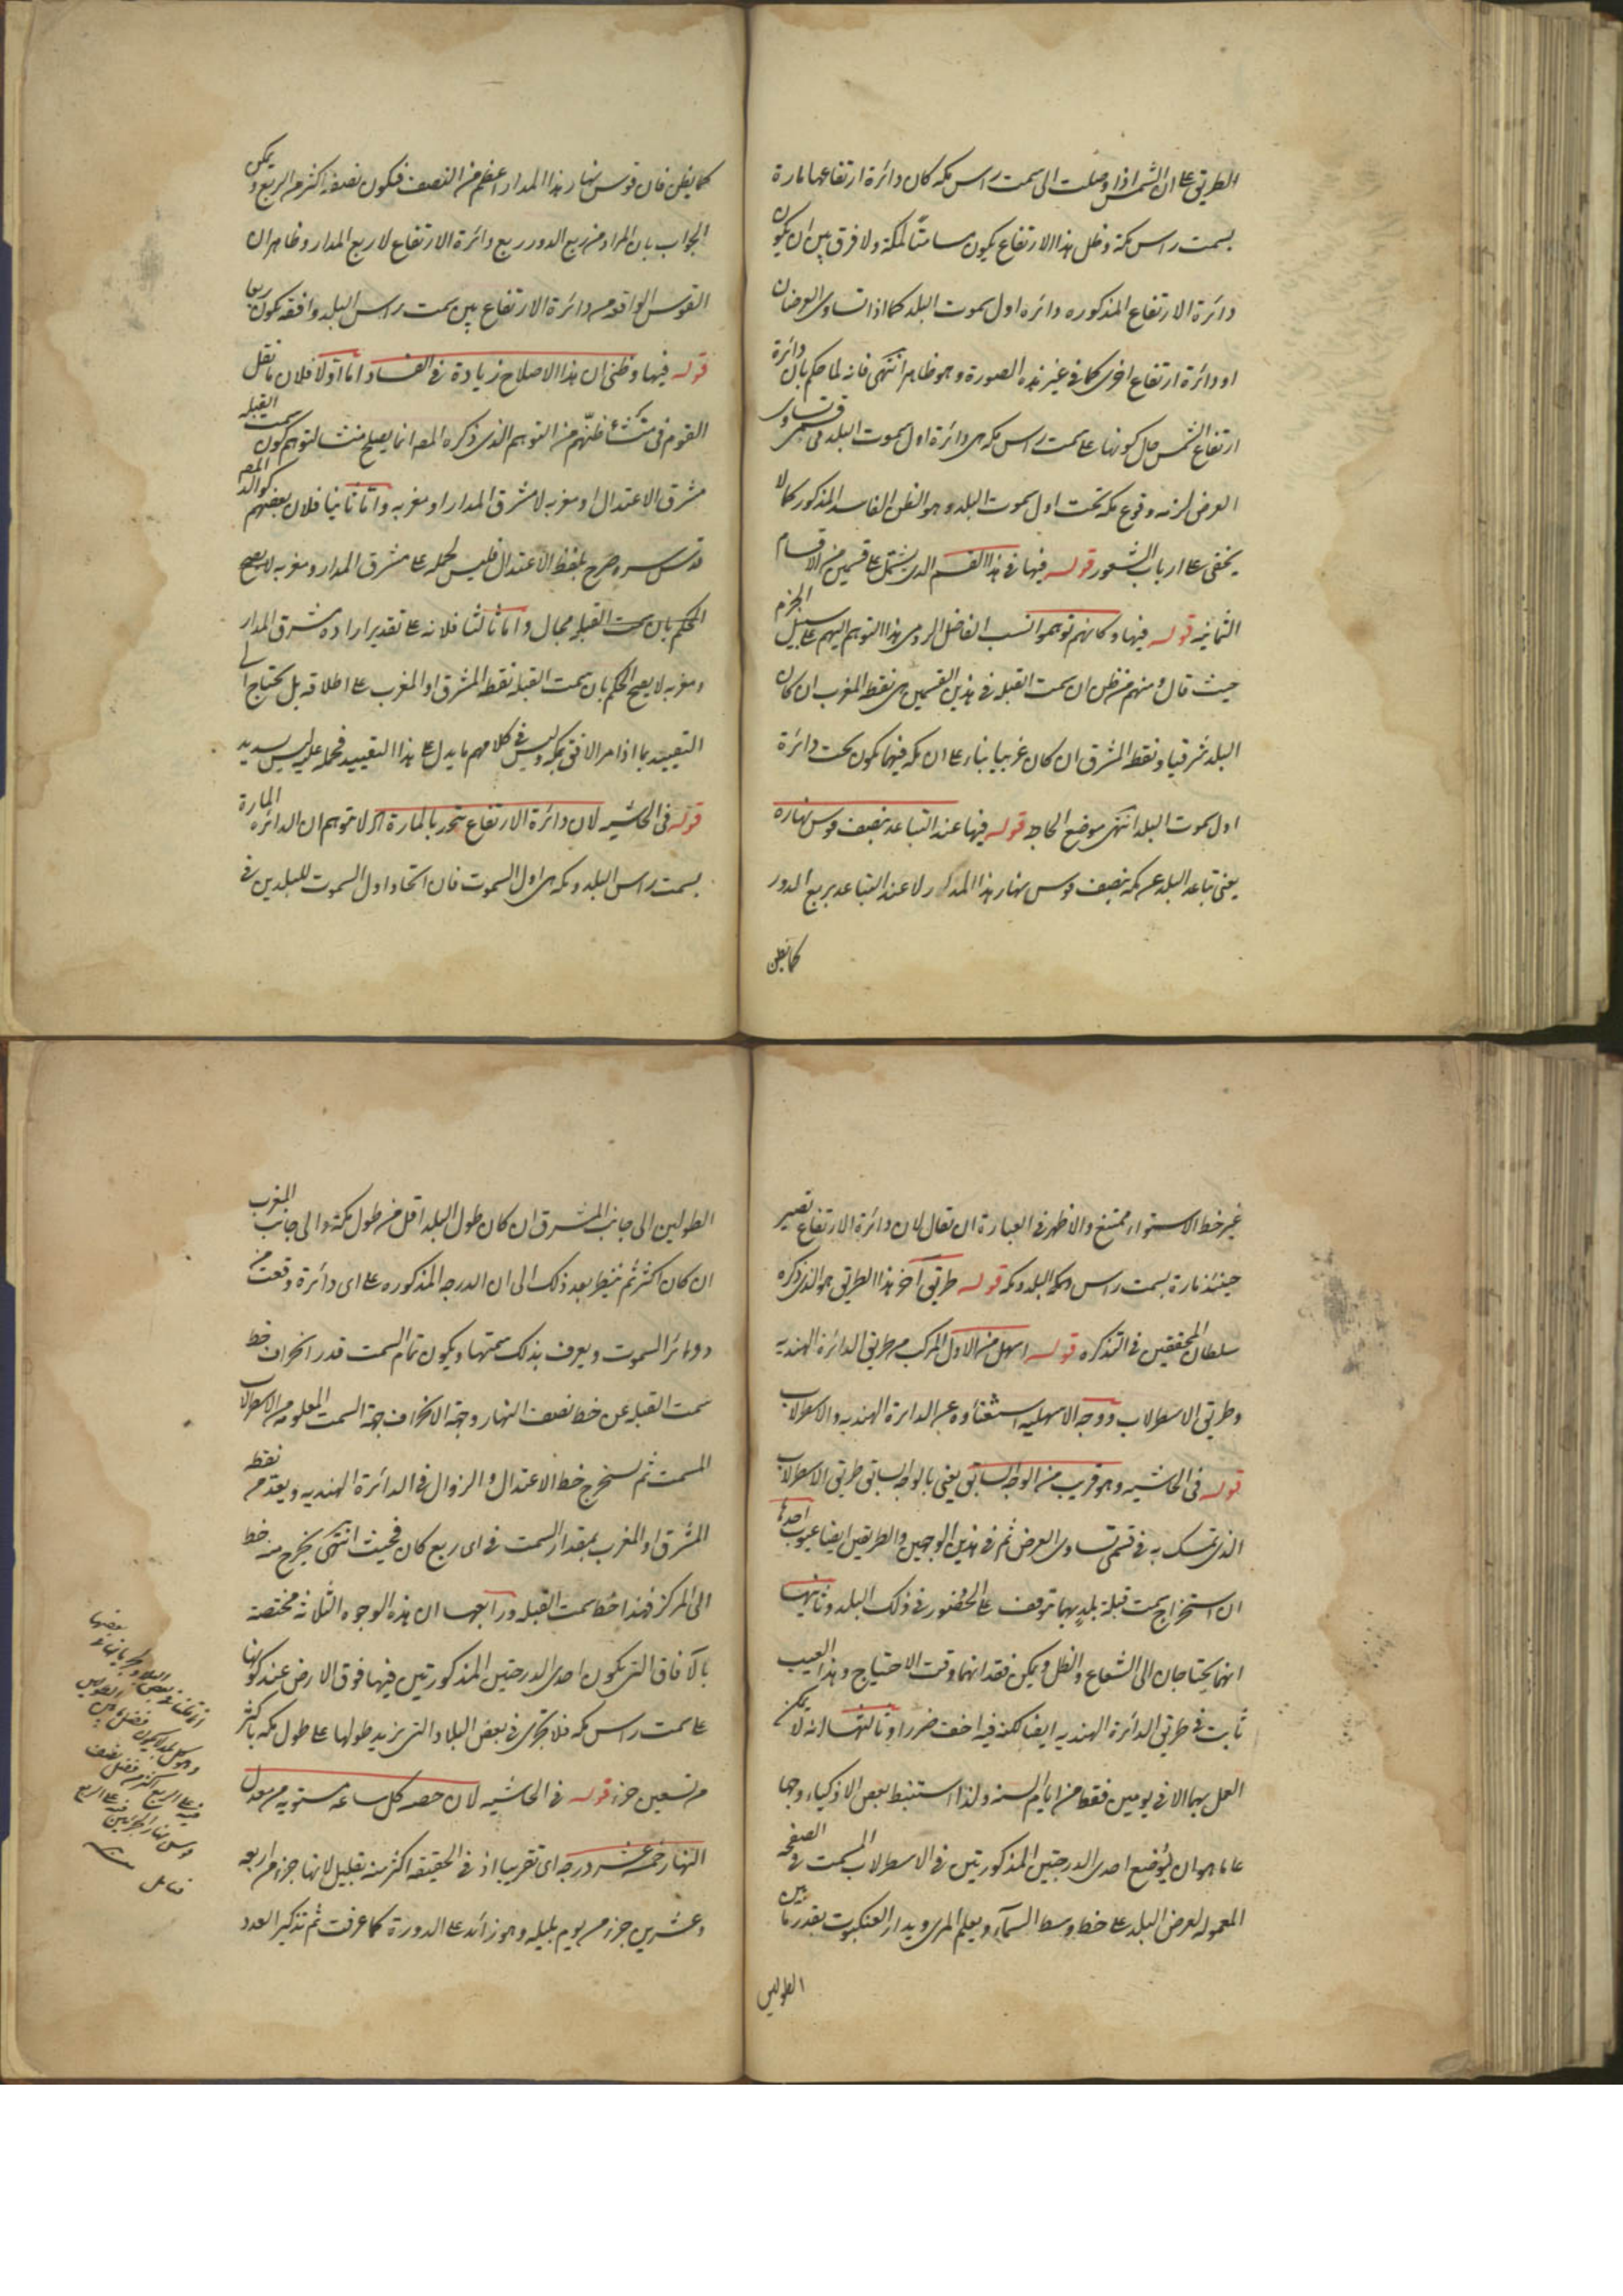 الطريق على ان الشمس اذا وصلت الى سمت راس مكه كان دائرة ارتفاعها مارة
بسمت راس مكة وظل هذا الارتفاع يكون مسامتًا لمكة ولا فرق بين ان يكون
دائرة الارتفاع المذكوره دائره اول سموت البلد كما اذا تساوى العرضان
او دائرة ارتفاع اخرى كما فى غير هذه الصورة وهو ظاهر انتهى فانه لما حكم بان دائرة
ارتفاع الشمس حال كونها على سمت راس مكه هى دائرة اول سموت البلد فى قسمى تساوى
العرض لزمه وقوع مكه تحت اول سموت البلد وهو الظن الفاسد المذكور كما لا
يخفى على ارباب الشعور قوله فيها فى هذا القسم الذى يشتمل على قسمين من الاقسام
الثمانيه قوله فيها وكانهم توهموا نسب الفاضل الرومى هذا التوهم اليهم على سبيل الجزم
حيث قال ومنهم من ظن ان سمت القبله فى هذين القسمين هى نقطه المغرب ان كان
البلد شرقيا ونقطه المشرق ان كان غربيا بناء على ان مكه فيهما تكون تحت دائرة
اول سموت البلد انتهى موضع الحاجه قوله فيها عند التباعد بنصف قوس نهاره
يعنى تباعد البلد عن مكه بنصف قوس نهار هذا المدار لا عند التباعد بربع الدور
كما يظن
كما يظن فان قوس نهار هذا المدار اعظم من النصف فيكون نصفه اكثر من الربع ويمكن
الجواب بان المراد من ربع الدور ربع دائرة الارتفاع لا ربع المدار وظاهر ان
القوس الواقعه من دائرة الارتفاع بين سمت راس البلد وافقه يكون ربعا
قوله فيها وظنى ان هذا الاصلاح زيادة فى الفساد اما اولا فلان ما نقل
القوم فى منشأ ظنهم من التوهم الذى ذكره المص انما يصلح منشأ لتوهم كون سمت القبله
مشرق الاعتدال او مغربه لا مشرق المدار او مغربه واما ثانيا فلان بعضهم كوالد المص
قدس سره صرح بلفظ الاعتدال فليس لحمله على مشرق المدار ومغربه لا يصح
الحكم بان سمت القبله مجال واما ثالثا فلانه على تقدير اراده مشرق المدار
ومغربه لا يصح الحكم بان سمت القبله نقطه المشرق او المغرب على اطلاقه بل يحتاج الى
التقييد بما اذا مر الافق بمكه وليس فى كلامهم ما يدل على هذا التقييد فحمله عليه ليس بسديد
قوله فى الحاشيه لان دائرة الارتفاع تتحد بالمارة الخ لا تتوهم ان الدائره المارة
بسمت راس البلد ومكه هى اول السموت فان اتحاد اول السموت للبلدين فى
غير خط الاستواء ممتنع والاظهر فى العبارة ان تقال لان دائرة الارتفاع تصير
حينئذ مارة بسمت راس البلد ومكه قوله طريق آخر هذا الطريق هو الذى ذكره
سلطان المحققين فى التذكره قوله اسهل من الاول المركب من طريق الدائرة الهنديه
وطريق الاسطرلاب ووجه الاسهليه استغناؤه عن الدائرة الهنديه والاسطرلاب
قوله فى الحاشيه وهو قريب من الوجه السابق يعنى بالوجه السابق طريق الاسطرلاب
الذى تمسك به فى قسمى تساوى العرض ثم فى هذين الوجهين والطريقين ايضا عيوب احدها
ان استخراج سمت قبلة بلد بهما يتوقف على الحضور فى ذلك البلد وثانيها
انهما يحتاجان الى الشعاع والظل ويمكن فقدانهما وقت الاحتياج وهذا العيب
ثابت فى طريق الدائرة الهنديه ايضا لكنه فيه اخف ضررا وثالثها انه لا يمكن
العمل بهما الا فى يومين فقط من ايام السنه ولذا استنبط بعض الاذكياء وجها
عاما هو ان يوضع احدى الدرجتين المذكورتين فى الاسطرلاب المسمت فى الصفحه
المعموله لعرض البلد على خط وسط السماء ويعلم المرى ويدار العنكبوت بقدر ما بين
الطولين
الطولين الى جانب المشرق ان كان طول البلد اقل من طول مكة والى جانب المغرب
ان كان اكثر ثم ينظر بعد ذلك الى ان الدرجه المذكوره على اى دائرة وقعت من
دوائر السموت ويعرف بذلك سمتها ويكون تمام السمت قدر انحراف خط
سمت القبله عن خط نصف النهار وجهة الانحراف جهة السمت المعلومه من الاسطرلاب
المسمت ثم نستخرج خط الاعتدال والزوال فى الدائرة الهنديه ويعد من نقطه
المشرق او المغرب بمقدار السمت فى اى ربع كان فحيث انتهى يخرج منه خط
الى المركز فهذا خط سمت القبله ورابعها ان هذه الوجوه الثلاثه مختصة
بالآفاق التى يكون احدى الدرجتين المذكورتين فيها فوق الارض عند كونها
على سمت راس مكه فلا تجرى فى بعض البلاد التى يزيد طولها على طول مكه باكثر
من تسعين جزء قوله فى الحاشيه لان حصه كل ساعه مستويه من معدل
النهار خمسة عشر درجه اى تقريبا اذ فى الحقيقه اكثر منه بقليل لانها جزء من اربعه
وعشرين جزء من يوم بليله وهو زائد على الدورة كما عرفت ثم تذكير العدد